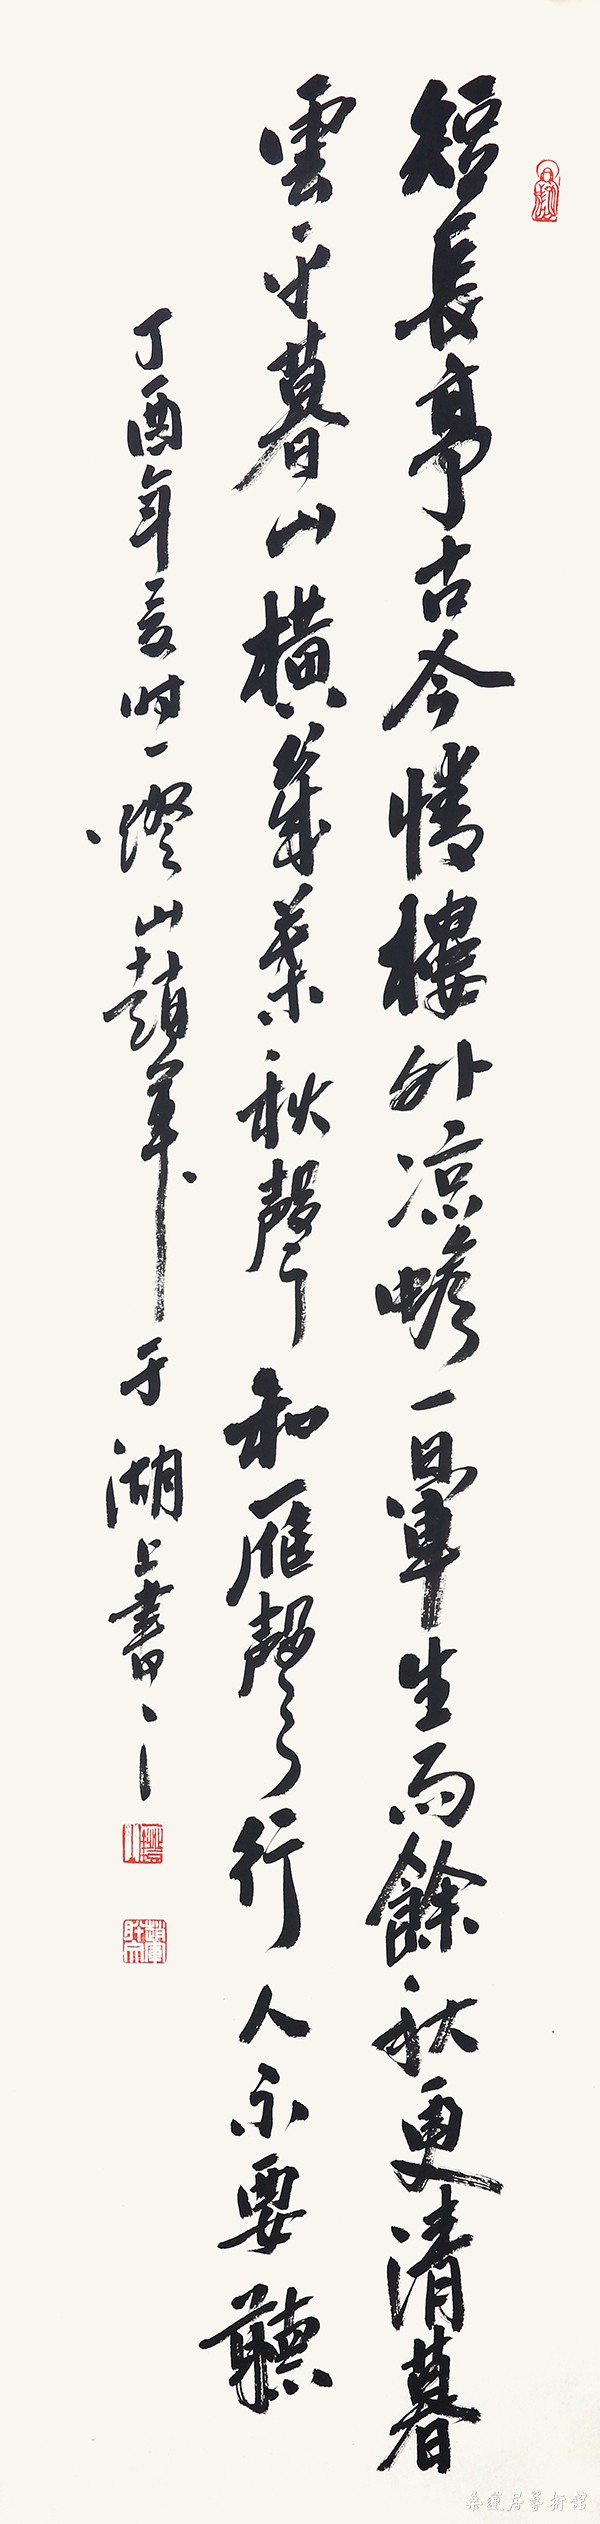 短長亭古今情樓外凉蟾一暈生雨餘秋更清暮
雲平暮山橫幾葉秋聲和雁聲行人不要聽
丁酉年夏時一燈山趙軍于湖上書之
桑蓮居藝術館